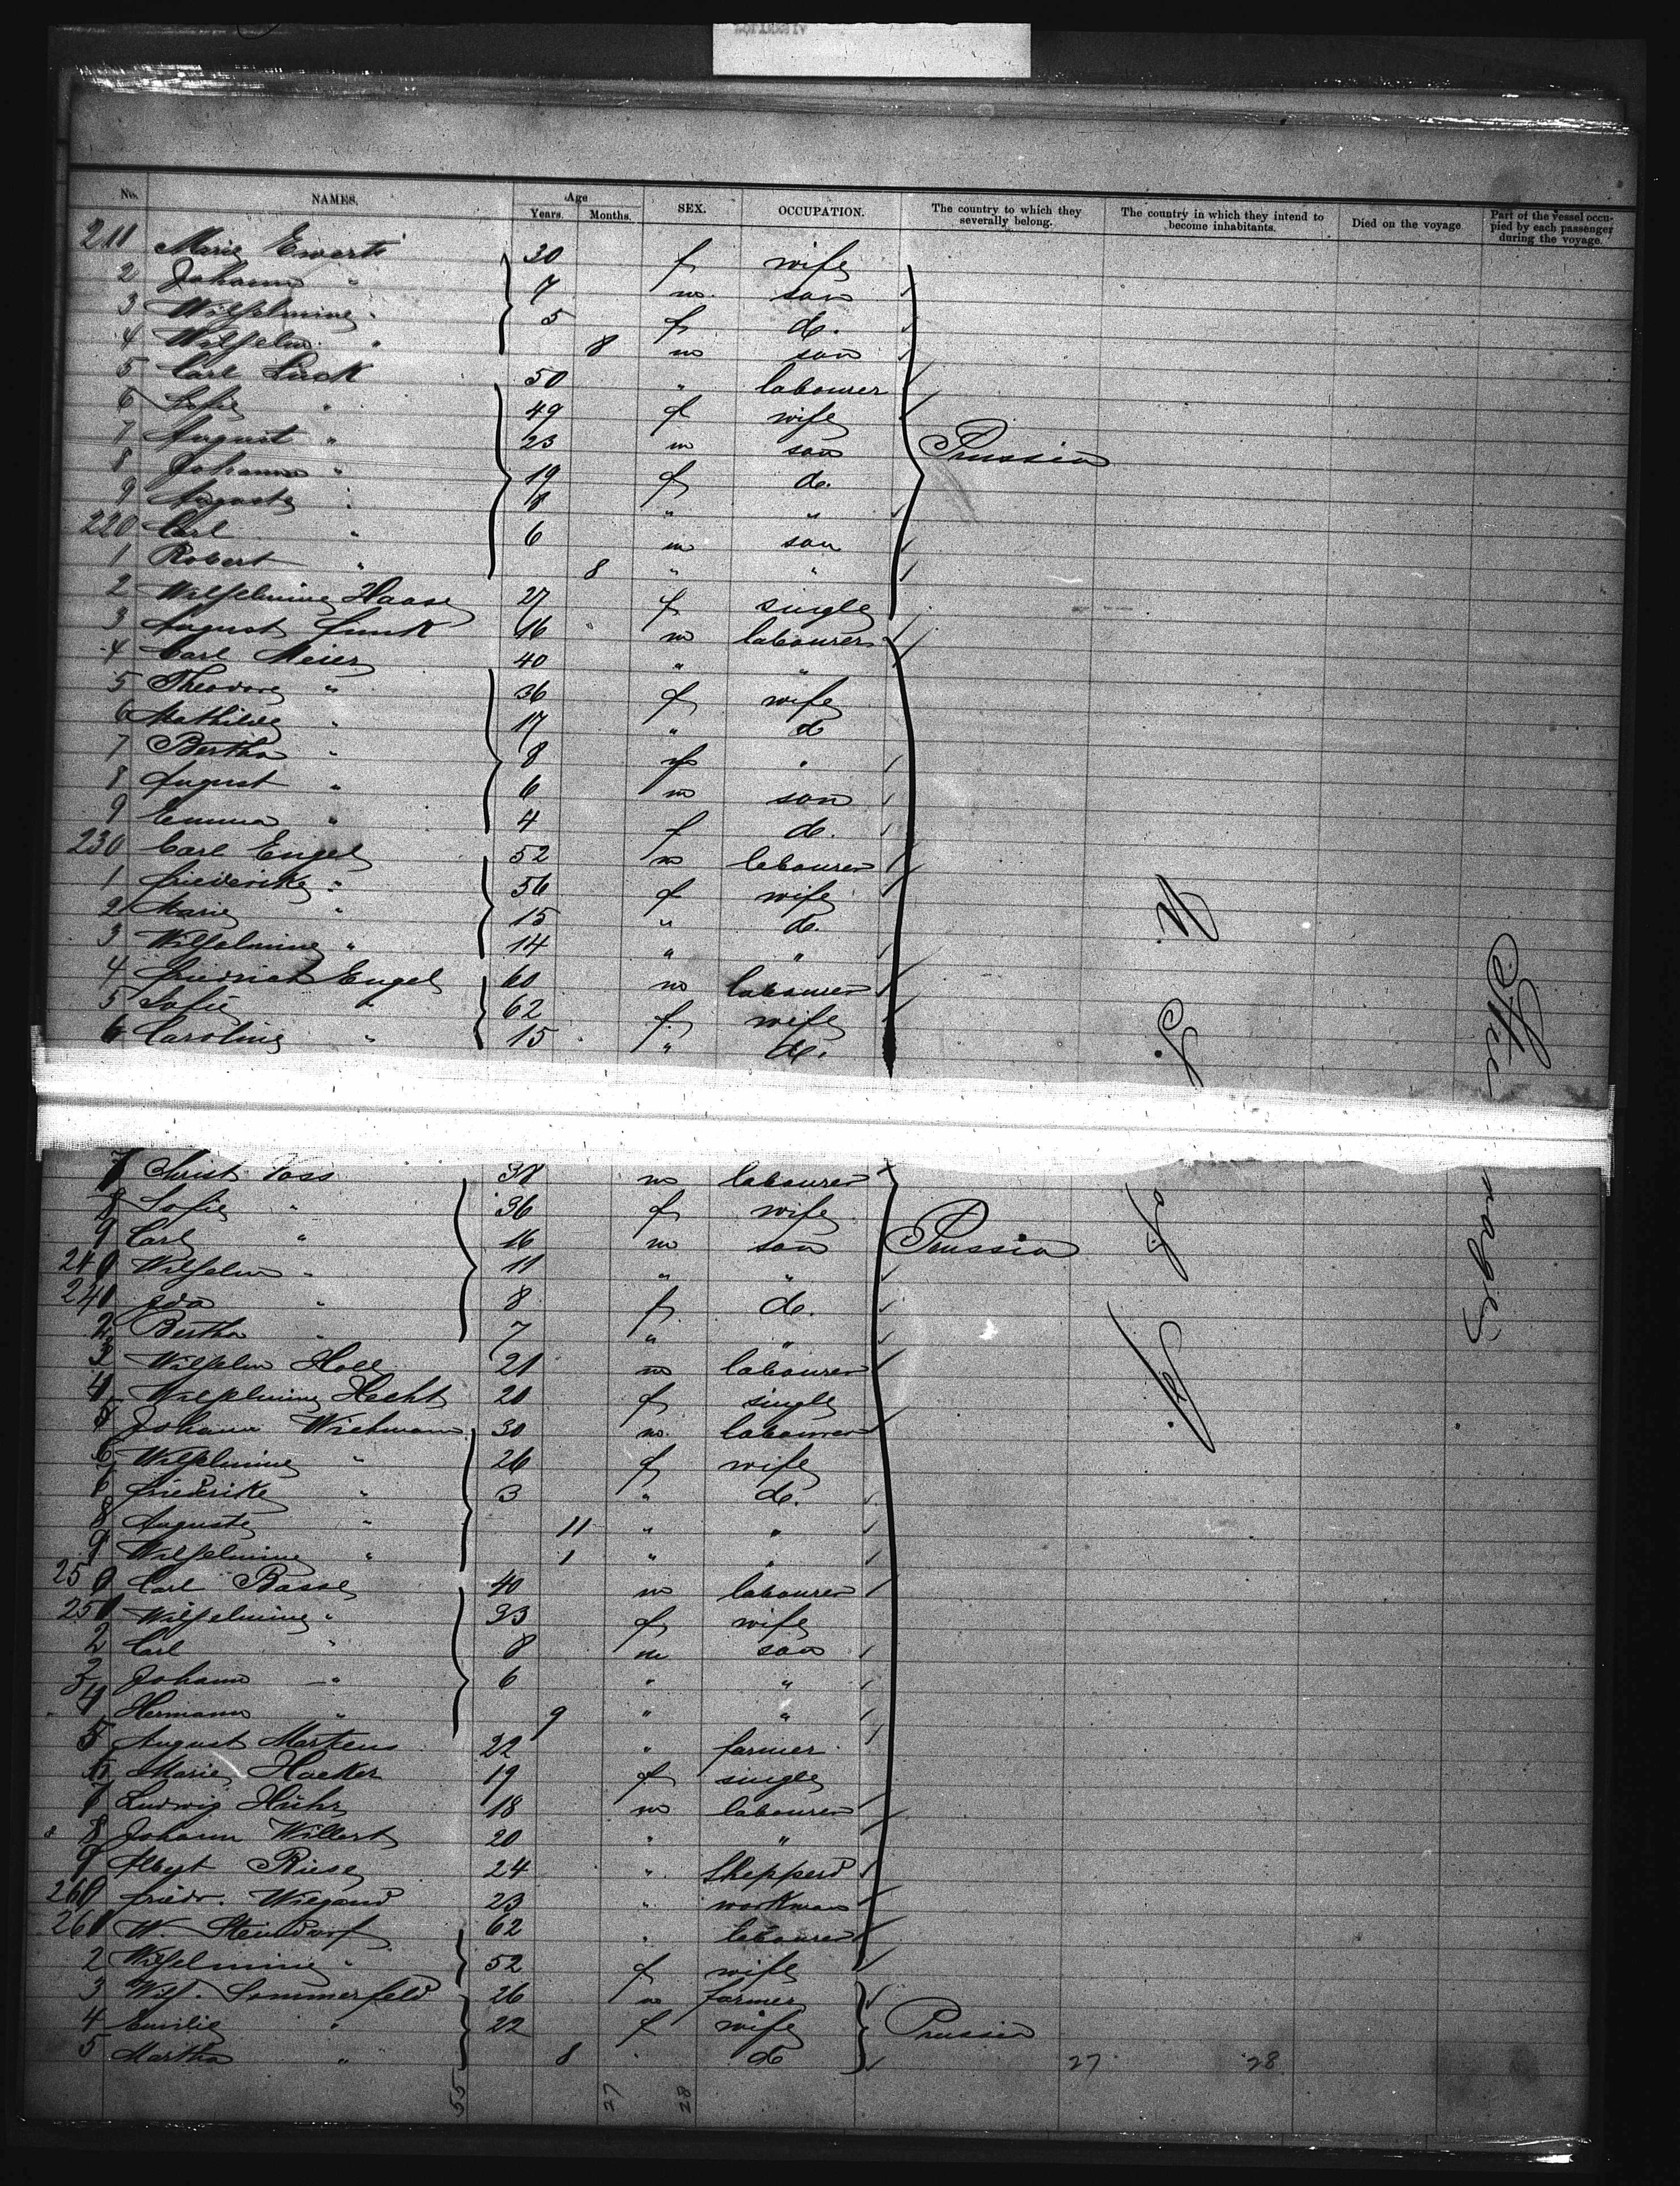 No. NAMES. Age Years. Months. SEX. OCCUPATION. The country to which they severally belong. The country in which they intend to become inhabitants. Died on the voyage. Part of the vessel occupied by each passenger during the voyage.
211 Marie Ewerts 30 f wife
2 Johann " 7 m son
3 Wilhelmine " 5 f do.
4 Wilhelm " 8 m son
5 Carl Lück 50 " labourer
6 Sofie " 49 f wife
7 August " 23 m son Prussia
8 Johanna " 19 f do.
9 Auguste " 18 " "
220 Carl " 6 m son
1 Robert " 8 " "
2 Wilhelmine Haase 27 f single
3 August Funk 16 m labourer
4 Carl Meier 40 " "
5 Theodore " 36 f wife
6 Mathilde " 17 " do
7 Bertha " 8 f "
8 August " 6 m son
9 Emma " 4 f do.
230 Carl Engel 52 m labourer
1 Friederike " 56 f wife
2 Marie " 15 " do.
3 Wilhelmine " 14 " "
4 Friedrich Engel 60 m labourer
5 Sofie " 62 f wife
6 Caroline " 15 " do.
7 Christ. Voss 38 m labourer
8 Sofie " 36 f wife
9 Carl " 16 m son Prussia
240 Wilhelm " 11 " "
241 Ida " 8 f do.
2 Bertha " 7 " "
3 Wilhelm Holl 21 m labourer
4 Wilhelmine Hecht 20 f single
5 Johann Wichmann 30 m labourer
6 Wilhelmine " 26 f wife
7 Friedrike " 3 " do.
8 Auguste " 11 " "
9 Wilhelmine " 1 " "
250 Carl Basse 40 m labourer
251 Wilhelmine " 33 f wife
2 Carl " 8 m son
3 Johann " 6 " "
4 Hermann " 9 " "
5 August Martens 22 " farmer
6 Marie Hacker 19 f single
7 Ludwig Hühr 18 m labourer
8 Johann Willert 20 " "
9 Albert Riese 24 " Shepperd
260 Friedr. Wiegand 23 " workman
261 W. Steindorf 62 " labourer
2 Wilhelmine " 52 f wife
3 Wilh. Sommerfeld 26 m farmer
4 Emilie " 22 f wife Prussia
5 Martha " 8 " do
27 28
55 27 28
U. S. of A.